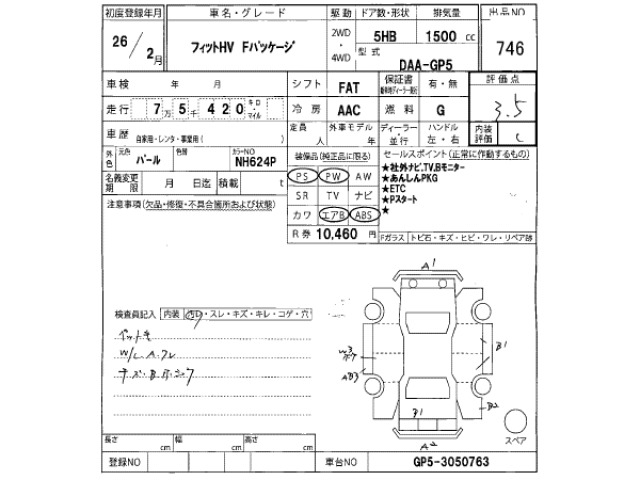 初度登録年月 車名・グレード 駆動 ドア数・形状 排気量 出品NO
26 / 2月 フィットHV Fパッケージ 2WD ・ 4WD 5HB 1500 cc 746
型式 DAA-GP5
車検 年 月 シフト FAT 保証書 有・無 評価点
走行 7万5千420 キロ・マイル 冷房 AAC 燃料 G 3.5
車歴 自家用・レンタ・事業用( ) 定員 人 外車モデル 年 ディーラー・並行 ハンドル 左・右 内装評価 C
外色 元色 パール 色替 カラーNO NH624P 装備品(純正品に限る) セールスポイント(正常に作動するもの)
名義変更期限 月 日迄 積載 t PS PW AW ★社外ナビ,TV,Bモニター
★あんしんPKG
注意事項(欠品・修復・不具合箇所および状態) SR TV ナビ ★ETC
★Pスタート
カワ エアB ABS ★
R券 10,460 円 Fガラス トビ石・キズ・ヒビ・ワレ・リペア跡
A1
検査員記入 内装 汚レ・スレ・キズ・キレ・コゲ・穴
W/L A.フレ
W3
B1
AB3
B2
B1
A2
スペア
長さ cm 幅 cm 高さ cm
登録NO 車台NO GP5-3050763